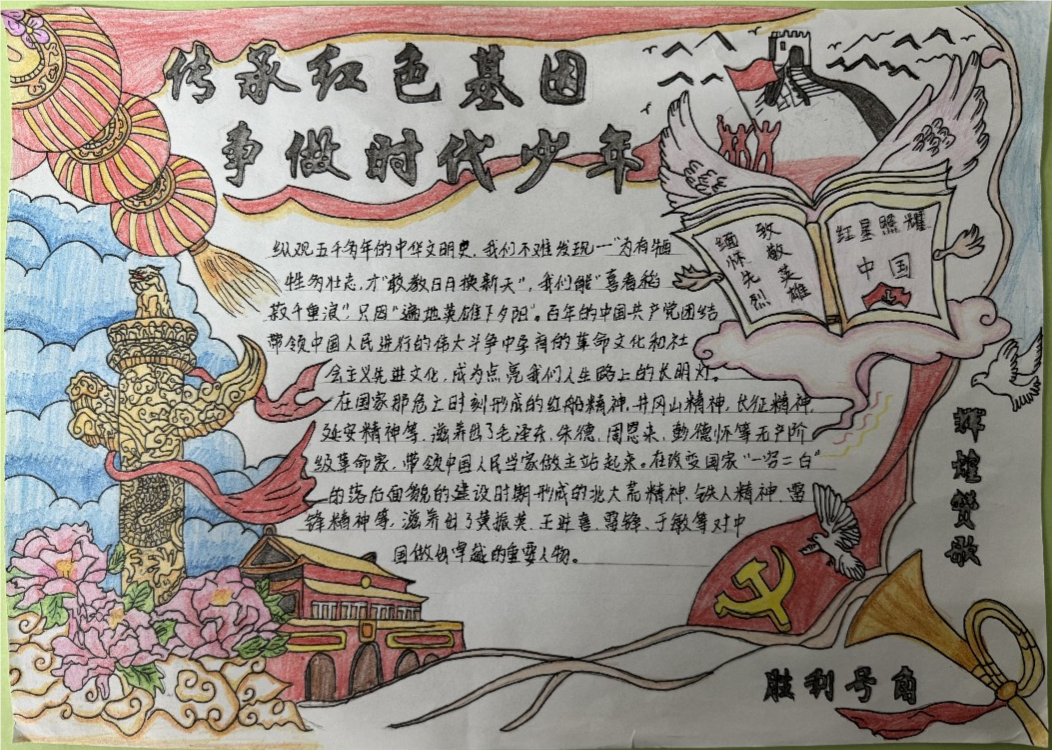 传承红色基因
争做时代少年
缅怀先烈
致敬英雄
红星照耀
中国
纵观五千多年的中华文明史,我们不难发现一"为有牺
牲多壮志,才"敢教日月换新天",我们能"喜看稻
菽千重浪"只因"遍地英雄下夕阳"。百年的中国共产党团结
带领中国人民进行的伟大斗争中孕育的革命文化和社
会主义先进文化,成为点亮我们人生路上的长明灯。
在国家那危亡时刻形成的红船精神,井冈山精神,长征精神,
延安精神等,滋养出了毛泽东、朱德、周恩来、彭德怀等无产阶
级革命家,带领中国人民当家做主站起来。在改变国家"一穷二白"
的落后面貌的建设时期形成的北大荒精神、铁人精神、雷
锋精神等,滋养出了黄振英、王进喜、雷锋、于敏等对中
国做出卓越的重要人物。
辉煌赞歌
胜利号角